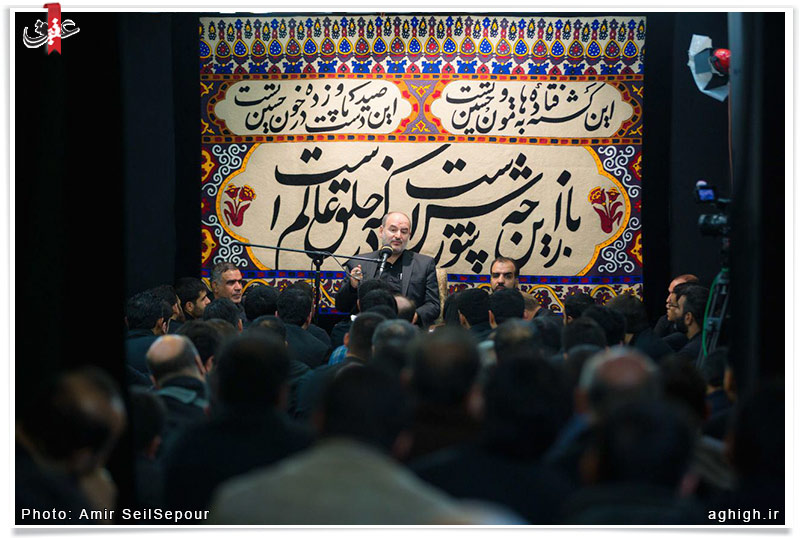 عقیق
این کشته فتاده به هامون حسین تست
این صید دست و پا زده در خون حسین تست
باز این چه شورش است که در خلق عالم است
Photo: Amir SeilSepour
aghigh.ir